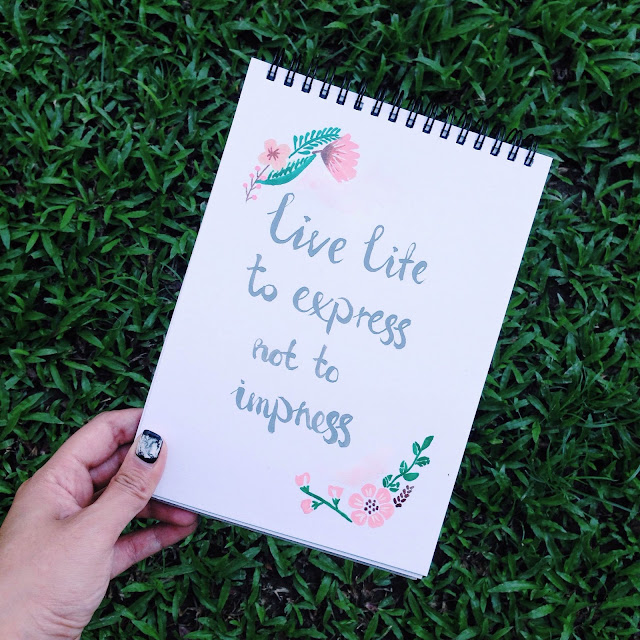 Live life
to express
not to
impress